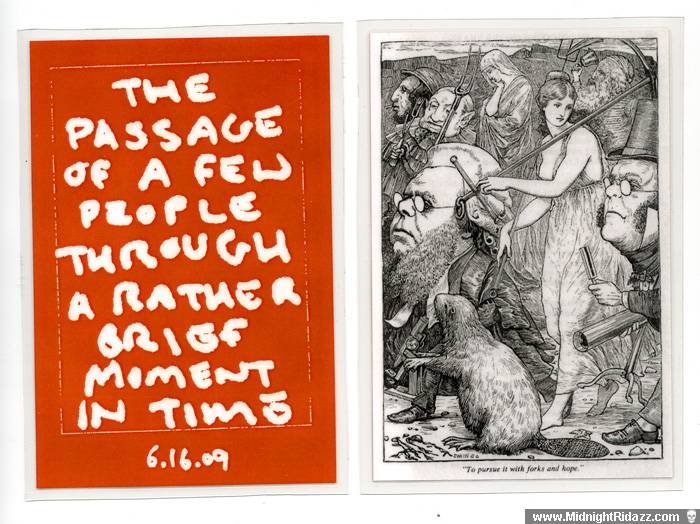 THE
PASSAGE
OF A FEW
PEOPLE
THROUGH
A RATHER
BRIEF
MOMENT
IN TIME
6.16.09
"To pursue it with forks and hope."
www.MidnightRidazz.com